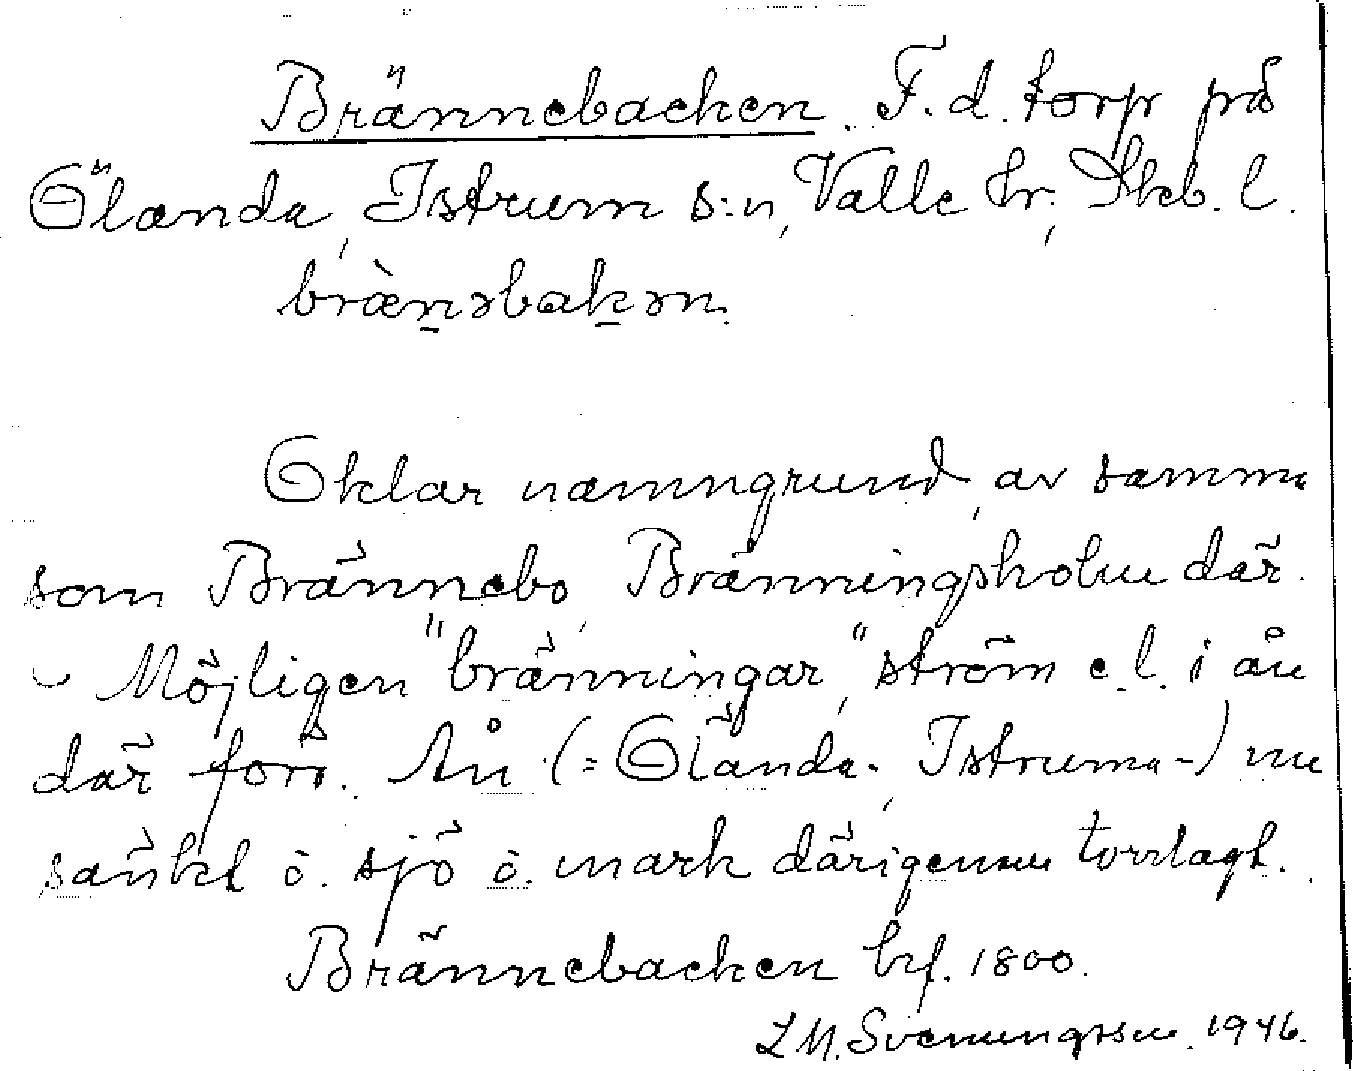 Brännebacken. F. d. torp på
Ölanda, Istrum s:n, Valle hr, Skb. l.
bræ̀n̲əbak̲ən.
Oklar namngrund, av samma
som Brännebo, Bränningsholm där.
– Möjligen "bränningar", ström e. l. i ån
där förr. Ån (= Ölanda-, Istruma-) nu
sänkt o. sjö o. mark därigenom torrlagt.
Brännebacken hfl. 1800.
L M. Svenungsson. 1946.